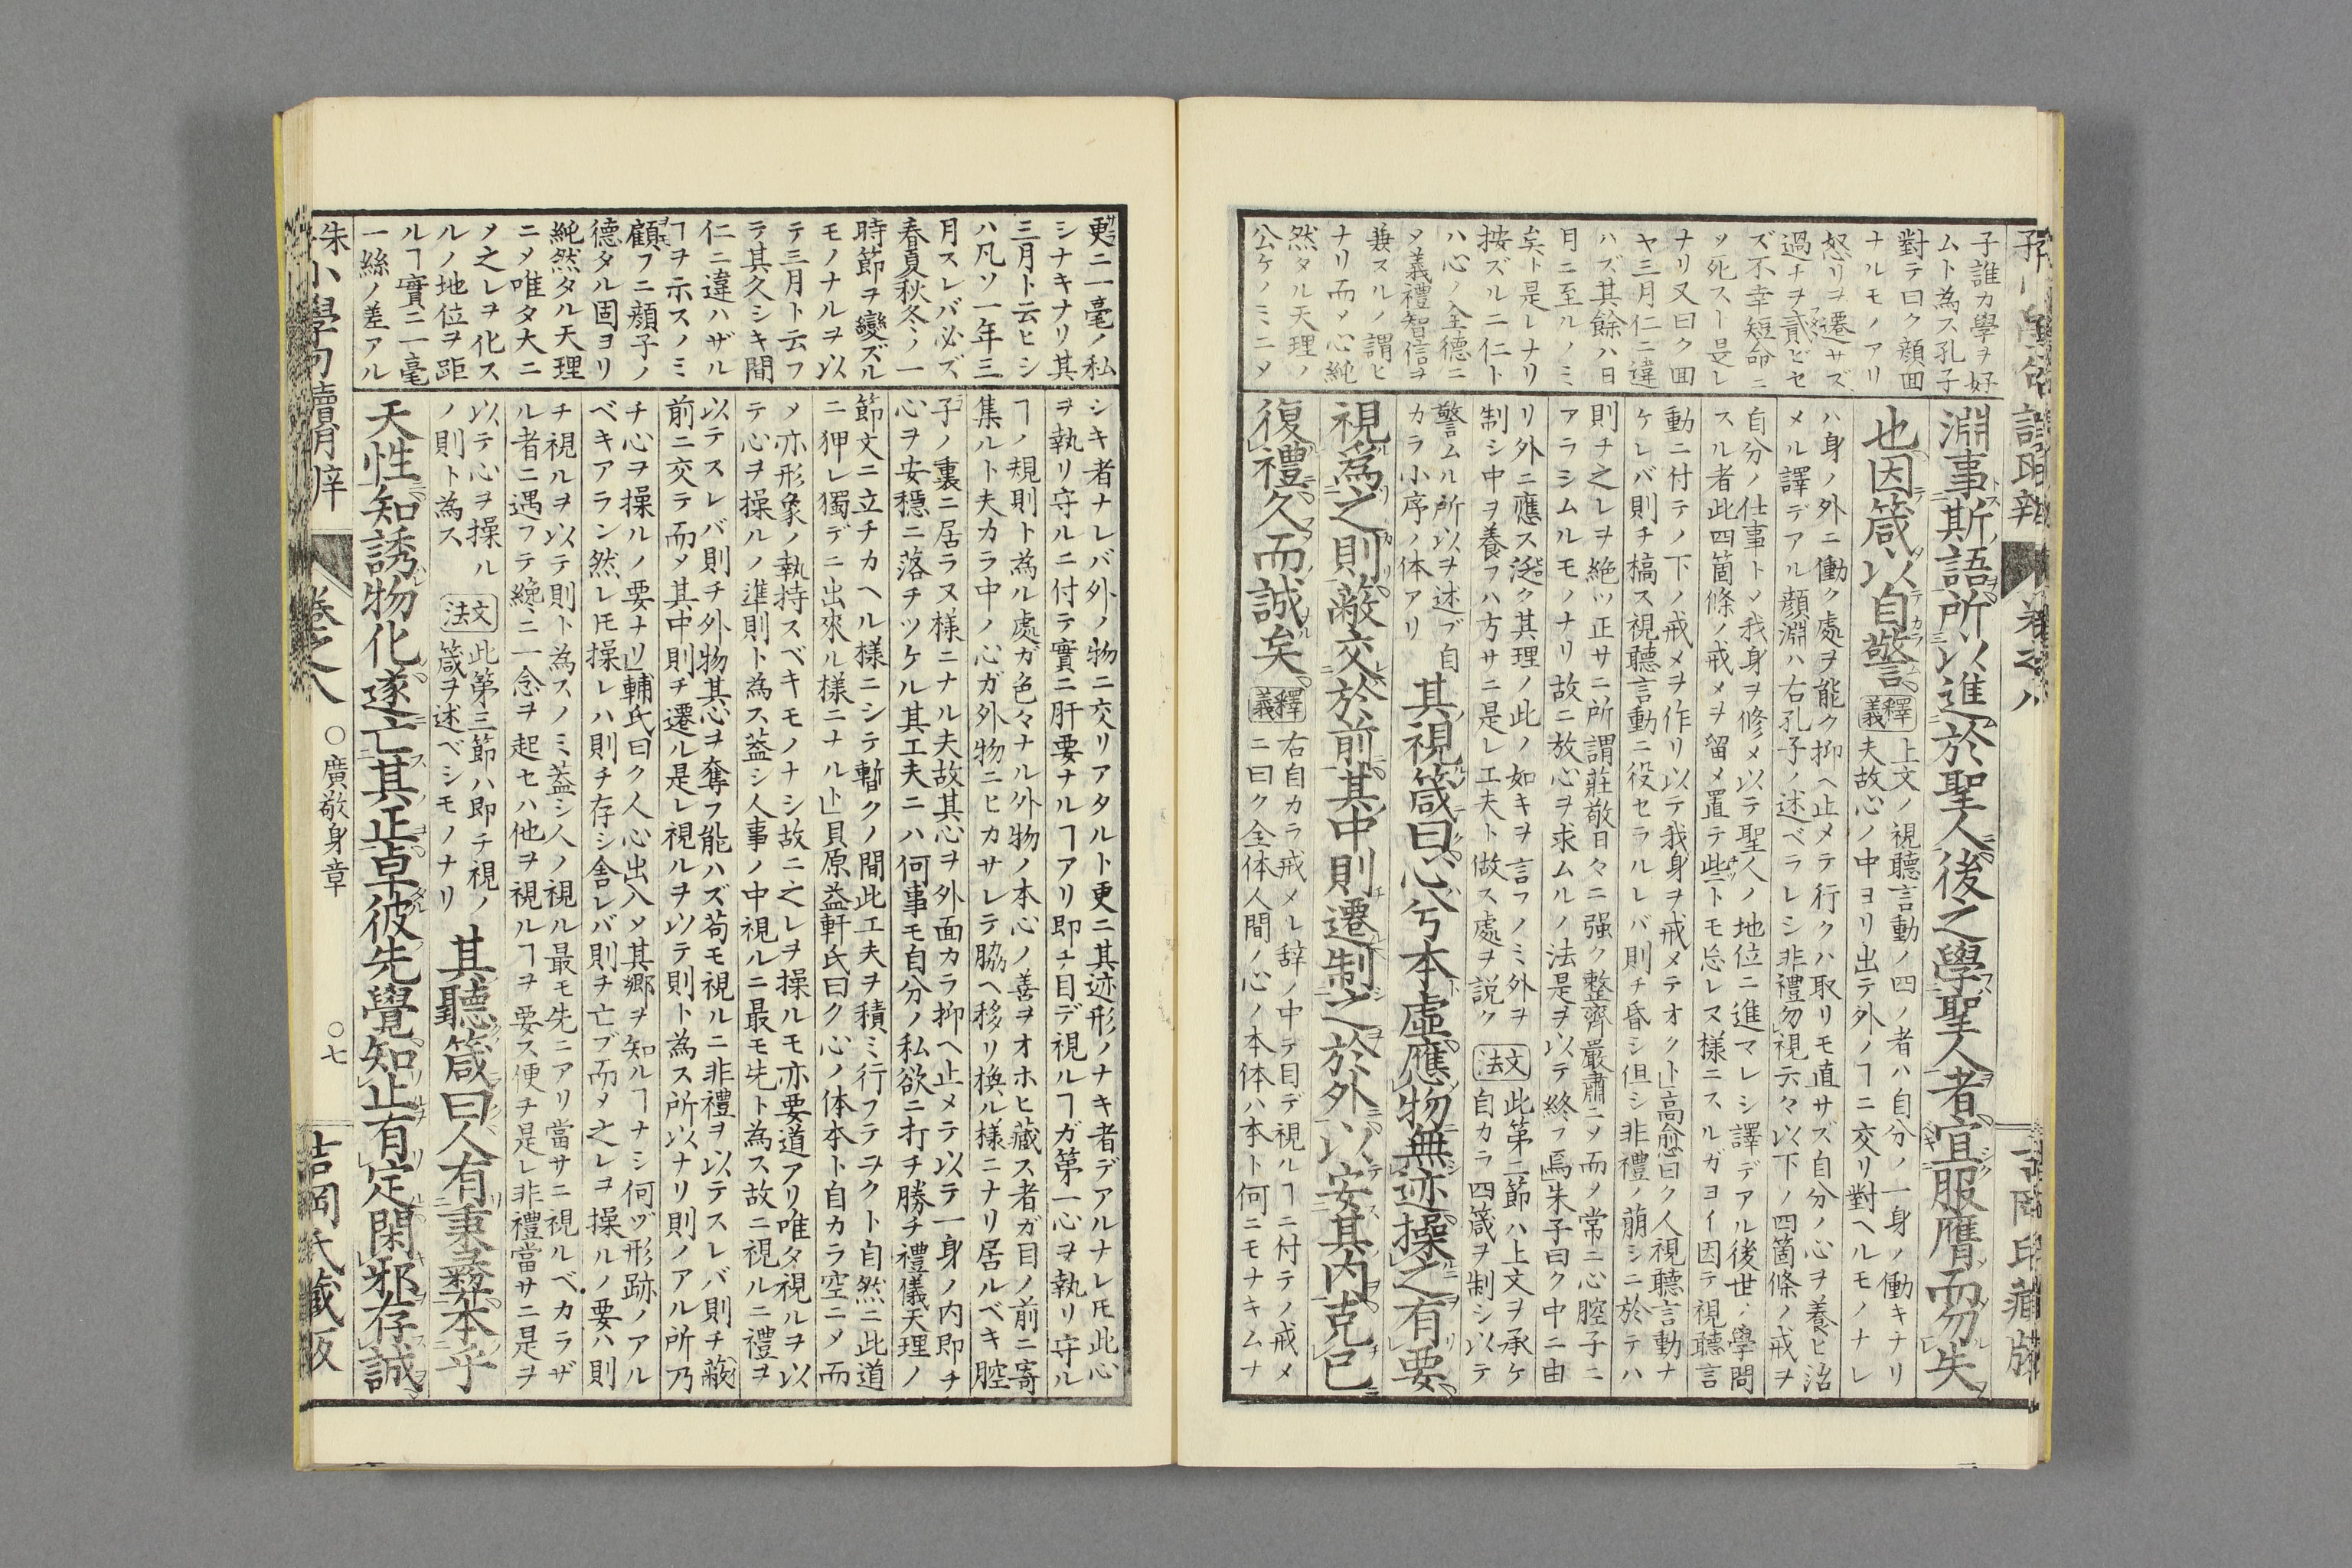 子誰カ學ヲ好
ムト為ス孔子
對テ曰ク顔囬
ナルモノアリ
怒リヲ遷サズ
過チヲ貳ビセ
ズ不幸短命ニ
ソ死スト是レ
ナリ又曰ク囬
ヤ三月仁ニ違
ハズ其餘ハ日
月ニ至ルノミ
矣ト是レナリ
按ズルニ仁ト
ハ心ノ全德ニ
〆義禮智信ヲ
兼スルノ謂ヒ
ナリ而〆心純
然タル天理ノ
公ケノミニ〆
淵事斯語所以進於聖人後之學聖人者宜服膺而勿失
也因箴以自警
釋義
上文ノ視聽言動ノ四ノ者ハ自分ノ一身ノ働キナリ
夫故心ノ中ヨリ出テ外ノヿニ交リ對ヘルモノナレ
ハ身ノ外ニ働ク處ヲ能ク抑ヘ止メテ行クハ取リモ直サズ自分ノ心ヲ養ヒ治
メル譯デアル顔淵ハ右孔子ノ述ベラレシ非禮勿視云々以下ノ四箇條ノ戒ヲ
自分ノ仕事ト〆我身ヲ修メ以テ聖人ノ地位ニ進マレシ譯デアル後世ノ學問
スル者此四箇條ノ戒メヲ留メ置テ些トモ忘レヌ様ニスルガヨイ因テ視聽言
動ニ付テノ下ノ戒メヲ作リ以テ我身ヲ戒メテオクト」高愈曰ク人視聽言動ナ
ケレバ則チ槁ス視聽言動ニ役セラルレバ則チ昏シ但シ非禮ノ萠シニ於テハ
則チ之レヲ絶ツ正サニ所謂莊敬日々ニ强ク整齊嚴肅ニソ而〆常ニ心腔子ニ
アラシムルモノナリ故ニ放心ヲ求ムルノ法是ヲ以テ終フ焉」朱子曰ク中ニ由
リ外ニ應ス泛ク其理ノ此ノ如キヲ言フノミ外ヲ
制シ中ヲ養フハ方サニ是レ工夫ト做ス處ヲ説ク
文法
此第二節ハ上文ヲ承ケ
自カラ四箴ヲ制シ以テ
警ムル所以ヲ述ブ自
カラ小序ノ体アリ
其視箴曰心兮本虛應物無迹操之有要
視爲之則蔽交於前其中則遷制之於外以安其内克己
復禮久而誠矣
釋義
右自カラ戒メレ辞ノ中テ目デ視ルヿニ付テノ戒メ
ニ曰ク全体人間ノ心ノ本体ハ本ト何ニモナキムナ
更ニ一毫ノ私
シナキナリ其
三月ト云ヒシ
ハ凡ソ一年三
月スレバ必ズ
春夏秋冬ノ一
時節ヲ變ズル
モノナルヲ以
テ三月ト云フ
ラ其久シキ間
仁ニ違ハザル
ヿヲ示スノミ
顧フニ顔子ノ
德タル固ヨリ
純然タル天理
ニ〆唯タ大ニ
〆之レヲ化ス
ルノ地位ヲ距
ルヿ實ニ一毫
一絲ノ差アル
シキ者ナレバ外ノ物ニ交リアタルト更ニ其迹形ノナキ者デアルナレ𪜈此心
ヲ執リ守ルニ付テ實ニ肝要ナルヿアリ即チ目デ視ルヿガ第一心ヲ執リ守ル
ヿノ規則ト為ル處ガ色々ナル外物ノ本心ノ善ヲオホヒ藏ス者ガ目ノ前ニ寄
集ルト夫カラ中ノ心ガ外物ニヒカサレテ脇ヘ移リ換ル様ニナリ居ルベキ腔
子ノ裏ニ居ラヌ様ニナル夫故其心ヲ外面カラ抑ヘ止メテ以テ一身ノ内即チ
心ヲ安穩ニ落チツケル其工夫ニハ何事モ自分ノ私欲ニ打チ勝チ禮儀天理ノ
節文ニ立チカヘル様ニシテ暫クノ間此工夫ヲ積ミ行フテヲクト自然ニ此道
ニ狎レ獨デニ出來ル様ニナルト」貝原益軒氏曰ク心ノ体本ト自カラ空ニ〆而
〆亦形象ノ執持スベキモノナシ故ニ之レヲ操ルモ亦要道アリ唯タ視ルヲ以
テ心ヲ操ルノ準則ト為ス蓋シ人事ノ中視ルニ最モ先ト為ス故ニ視ルニ禮ヲ
以テスレバ則チ外物其心ヲ奪フ能ハズ苟モ視ルニ非禮ヲ以テスレバ則チ蔽
前ニ交テ而〆其中則チ遷ル是レ視ルヲ以テ則ト為ス所以ナリ則ノアル所乃
チ心ヲ操ルノ要ナリ」輔氏曰ク人心出入〆其郷ヲ知ルヿナシ何ヅ形跡ノアル
ベキアラン然レ𪜈操レハ則チ存シ舎レバ則チ亡ブ而〆之レヲ操ルノ要ハ則
チ視ルヲ以テ則ト為スノミ蓋シ人ノ視ル最モ先ニアリ當サニ視ルベカラザ
ル者ニ遇フテ纔ニ一念ヲ起セハ他ヲ視ルヿヲ要ス便チ是レ非禮當サニ是ヲ
以テ心ヲ操ル
ノ則ト為ス
文法
此第三節ハ即チ視ノ
箴ヲ述ベシモノナリ
其聽箴曰人有秉彝本乎
天性知誘物化遂亡其正卓彼先覺知止有定閑邪存誠
卷之八
○廣敬身章
○七
吉岡氏藏版